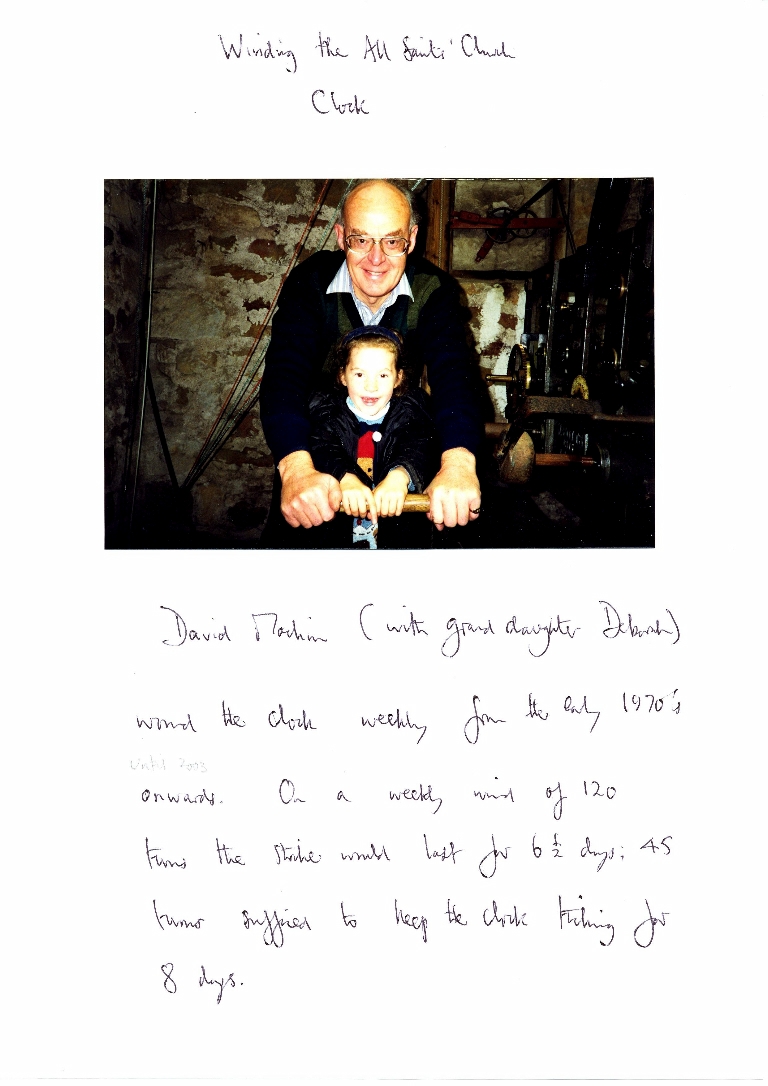 Winding the All Saints' Church
Clock
David Machin (with grand daughter Deborah)
wound the clock weekly from the early 1970's
until 2003
onwards. On a weekly wind of 120
turns the strike would last for 6 ½ days; 45
turns sufficed to keep the clock ticking for
8 days.